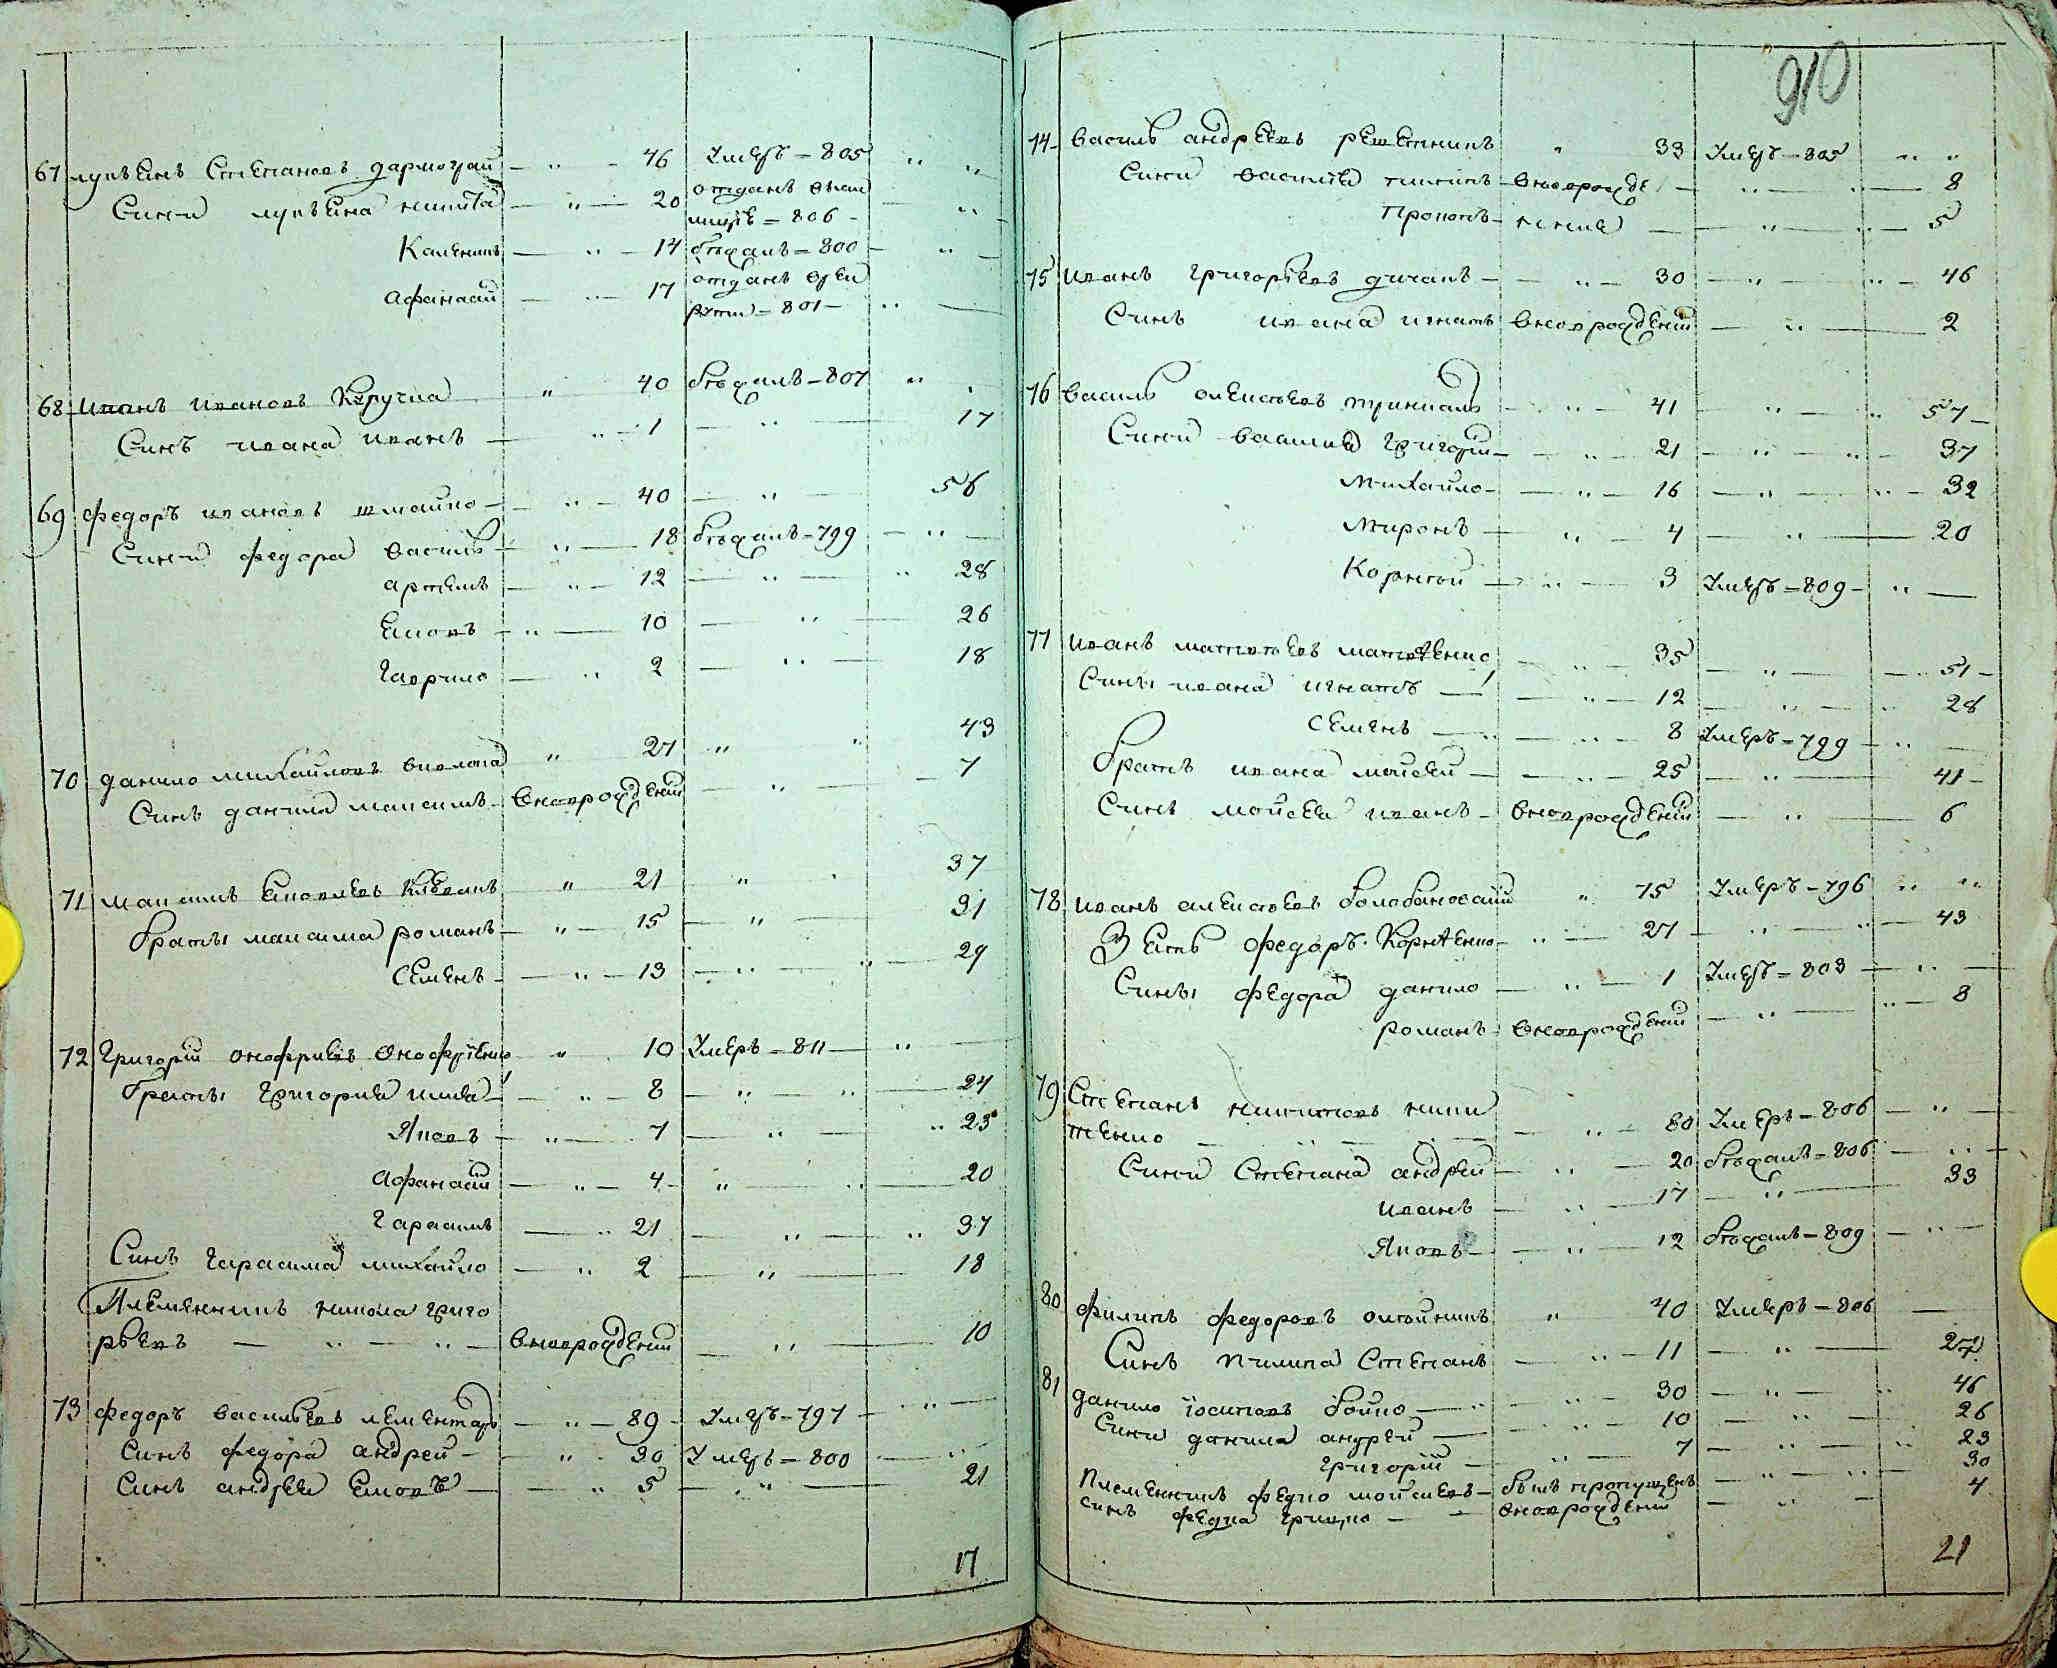 67 лукъянъ Степановъ дармограй — " — 46 Умеръ — 805 " "
Сини лукъяна никита — " — 20 отданъ вми
лицѣ — 806 — "
Каленикъ — " — 14 бѣжалъ — 800 — "
Афанасий — " — 17 отданъ врек
руты — 801 — "
68 Иванъ Ивановъ Кручка " 40 бѣжалъ — 807 "
Синъ ивана иванъ — " — 1 — " — 17
69 федоръ ивановъ шмайло — " — 40 — " — 56
Сини федора василь — " — 18 бѣжалъ — 799 — "
артемъ — " — 12 — " — " 28
Яковъ — " — 10 — " — 26
Гаврило — " 2 — " — 18
70 данило михайловъ " 27 " " 43
Синъ данила максимъ — вноврожденй — " — 7
71 максимъ Яковлевъ " 21 " 37
браты максима романъ — " — 15 — " — 31
Семенъ — " — 13 — " — " 29
72 Григорій онофриевъ Онофрѣенко " 10 Умеръ — 811 — "
браты Григория илия — " — 8 — " — " — 24
Яковъ — " — 7 — " — " 23
Афанасий — " — 4 — " — " — 20
Гарасимъ — " 21 — " — " 37
Синъ Гарасима михайло — " 2 — " — 18
Племенникъ никола григо
рьевъ — " — " — вноврожденй — " — 10
73 федоръ васильевъ лементаръ — " — 89 — Умеръ — 797 — "
Синъ федора андрей — " — 30 Умеръ — 800 — "
Синъ андрея Яковъ — " 5 — " — 21
17
910
74 василь андреевъ решетникъ " 33 Умеръ — 805 " "
Сини василия — вновражде — " — " — 8
Прокопъ — " — " — 5
75 иванъ григорѣевъ дичакъ — " — 30 — " — " — 46
Синъ ивана игнатъ вноврожденй — " — 2
76 василь алексѣевъ — " — 41 — " — " 57 —
Сини василия Григорій — " — 21 — " — " — 37
михайло — " — 16 — " — " — 32
миронъ — " — 4 — " — 20
Корнѣй — " — 3 Умеръ — 809 — "
77 иванъ матвѣевъ матвѣенко — " — 35 — " — " 51 —
Сины ивана игнатъ — " — 12 — " — " 28
Семенъ — " — 8 Умеръ — 799 — "
братъ ивана мойсей — " — 25 — " — 41 —
Синъ мойсея иванъ — вноврожденй — " — 6
78 иванъ алексѣевъ болобановский " 75 Умеръ — 796 " "
Зять федоръ Корнѣенко — " — 27 — " — " — 43
Сины федора данило — " — 1 Умеръ — 803 — "
романъ — вноврожденй — " — " — 8
79 Степанъ никитовъ ники
тенко — " — " — 80 Умеръ — 806 — "
Сини Степана андрей — " — 20 бѣжалъ — 806 — "
иванъ — " — 17 — " — 33
Яковъ — " — 12 бѣжалъ — 809 — "
80 филипъ федоровъ олѣйникъ " 40 Умеръ — 806 —
Синъ пилипа Степанъ — " — 11 — " — 27
81 данило іосиповъ бойко — " — 30 — " — " 46
Сини данила андрей — " — 10 — " — 26
григорій — " — 7 — " — " 23
Племенникъ федко мойсѣевъ — былъ пропущенъ — " — " — 30
Синъ федка грицко — вноврожденй — " — 4
21